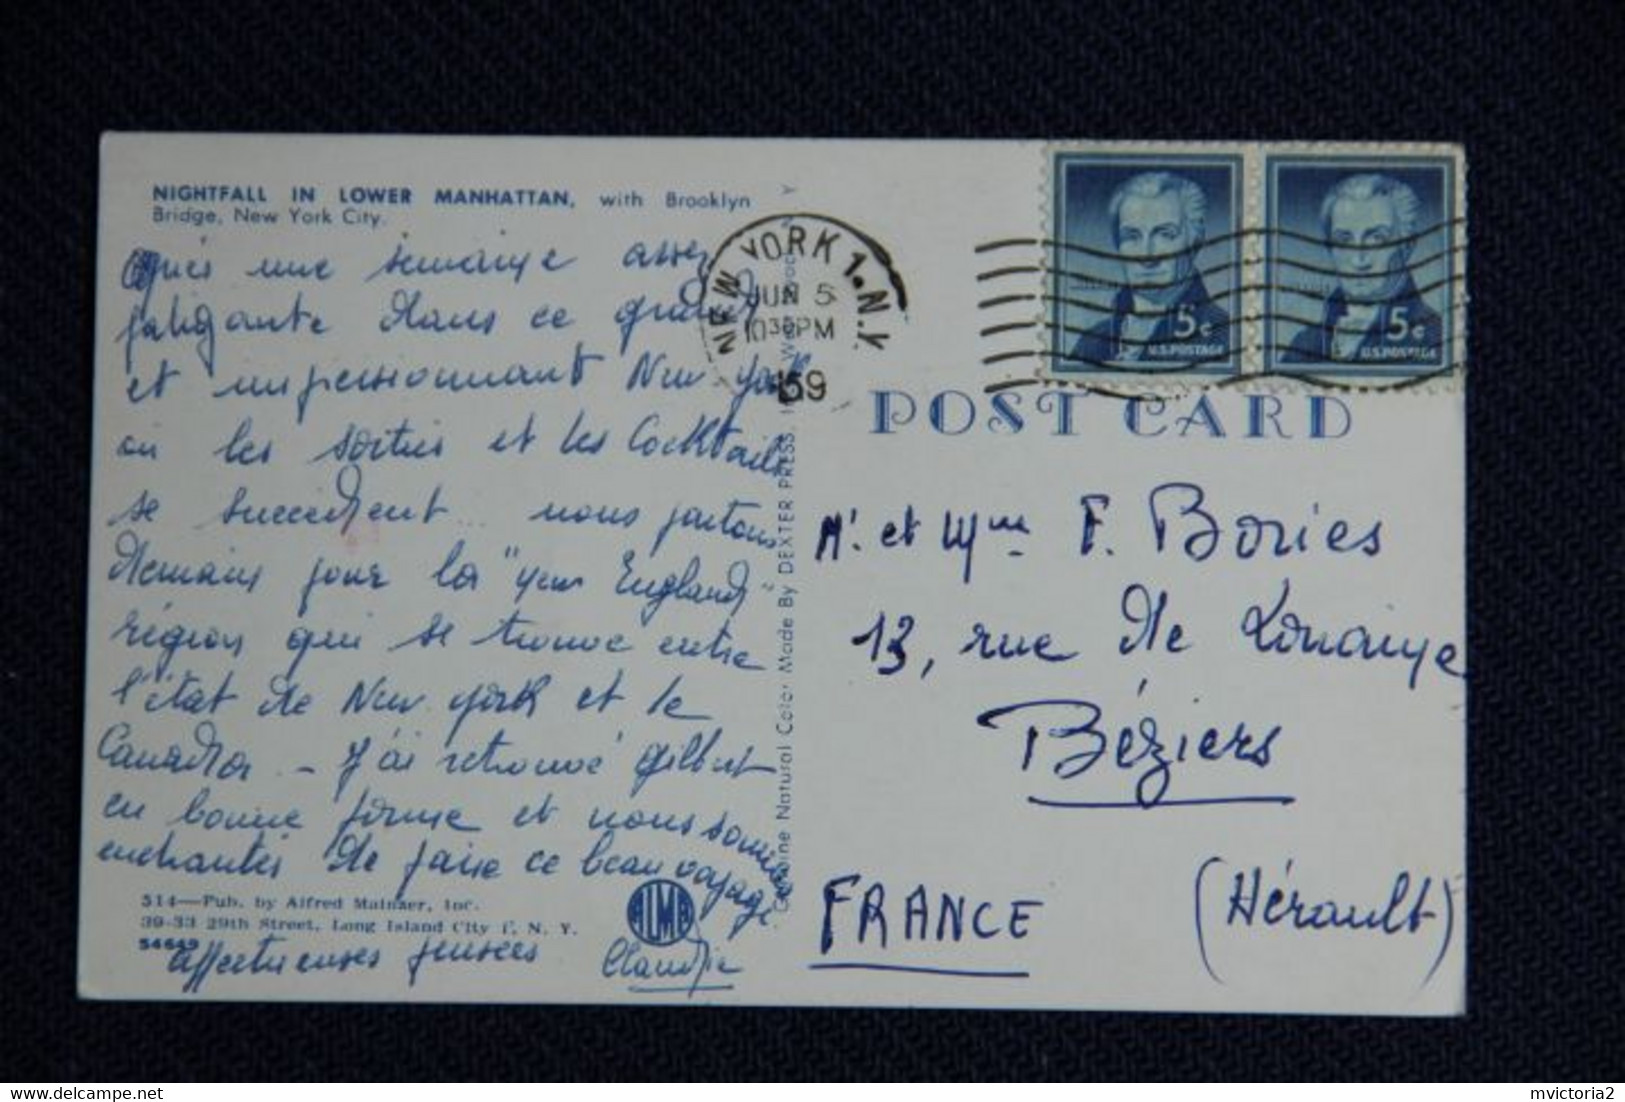 NIGHTFALL IN LOWER MANHATTAN, with Brooklyn
Bridge, New York City.
après une semaine assez
fatigante dans ce grand
et impressionnant New York
où les sorties et les Cocktails
se succèdent... nous partons
demain pour la "New England"
région qui se trouve entre
l'état de New York et le
Canada - J'ai retrouvé Gilbert
en bonne forme et nous sommes
enchantés de faire ce beau voyage
514—Pub. by Alfred Mainzer, Inc.
39-33 29th Street, Long Island City 1, N. Y.
54649
ALMA
affectueuses pensées Claudie
Natural Color Made By DEXTER PRESS, 
NEW YORK 1. N.Y.
JUN 5
10 30 PM
1959
5c
U.S. POSTAGE
5c
U.S. POSTAGE
POST CARD
Mr. et Mme F. Bories
13, rue de Lorraine
Béziers
(Hérault)
FRANCE
www.delcampe.net
mvictoria2